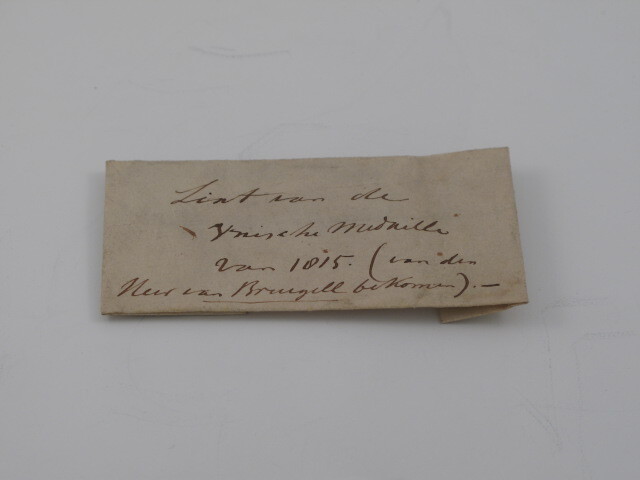 Lint van de
Medaille
van 1815. (van den
Heer van Bruegell bekomen). —